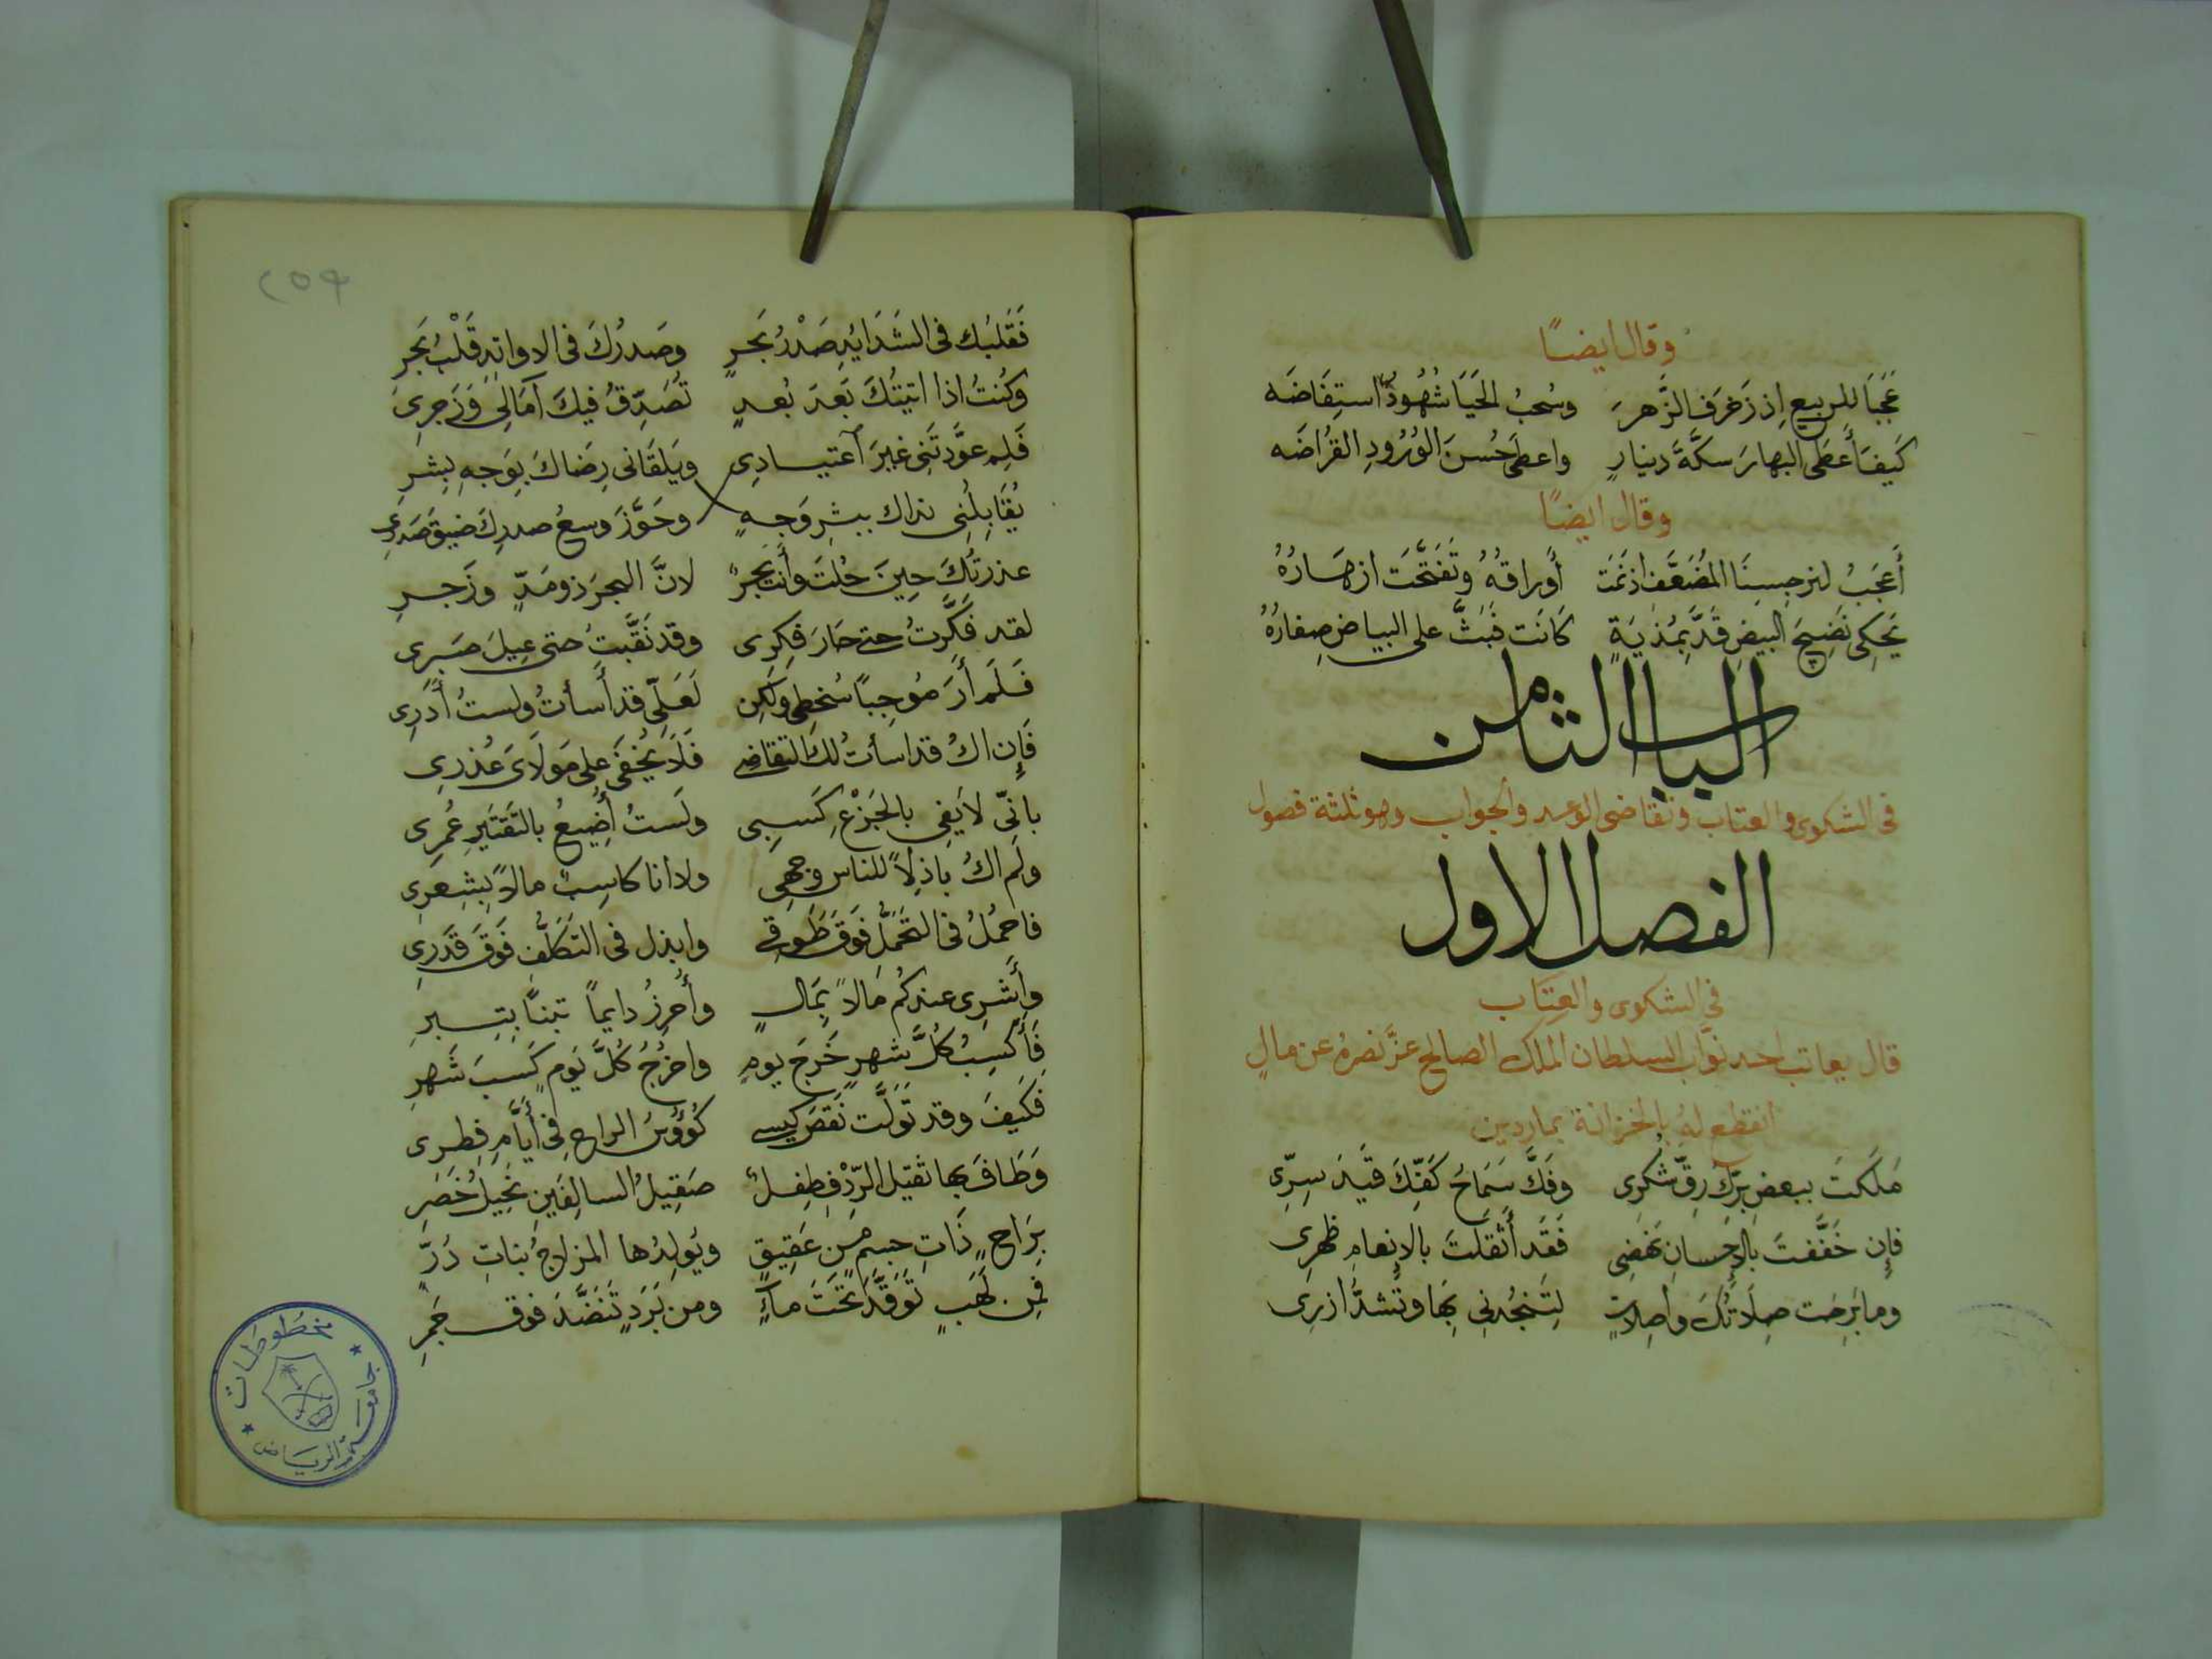 وقال ايضًا
عَجَبًا للربيع إذ زَخرَف الزَّهرَ وسُحبُ الحَيَا شُهُودُ استِفَاضَه
كَيفَ أَعطَى البهارَ سكَّةَ دينارٍ واعطى حُسنَ الوُرُودِ القُراضَه
وقال ايضًا
أَعجَبُ لنرجِسِنَا المُضَعَّف اذ نَمَت أَوراقهُ وتَفَتَّحَت ازهَارُهُ
يَحكِى نَضِيجَ البيضِ قَدَّ بمُديَةٍ كَانَت فَبَثَّ على البياضِ صِفَارُهُ
الباب الثامن
فى الشكوى والعتاب وتقاضى الوعد والجواب وهو ثلثة فصول
الفصل الاول
في الشكوى والعِتَاب
قال يعاتب احد نوَّاب السلطان الملك الصالح عزَّ نصرهُ عن مالٍ
انقطع لهُ بالخزانة بماردين
مَلَكتَ ببعض برِّكَ رِقَّ شُكرِى وفَكَّ سَمَاحُ كَفِّكَ قَيدَ سِرِّى
فإِن خَفَّفتَ بالإحسانِ نَهضِى فَقَد أَثقَلتَ بالإنعامِ ظهرِى
وما بَرِحَت صِلَاتُكَ واصِلاتٍ لِتَنجُدنِى بِهَا وتَشدَّ ازرِى
٢٥٩
فَقَلبُك فى الشَدَايدِ صَدْرُ بَحرٍ وصَدرُكَ فى الاوابدِ قَلْبُ بَحرِ
وكُنتُ اذا اتيتُكَ بَعدَ بُعدٍ تُصَدِّقُ فيكَ آمَالِى وَزَجرِى
فَلِم عوَّدتَنِى غيرَ آعتيادِى ويَلقَانى رِضَاكَ بِوَجهِ بِشرِ
يُقَابِلُنِى نداك ببشرِ وَجهٍ وحَوَّزَ وسعُ صدرِكَ ضيقَ صَدرِى
عذرتُكَ حِينَ حُلتَ وأنتَ بَحرٌ لانَّ البحرَ ذو مَدٍّ وزَجرِ
لقد فَكَّرتُ حتى حَارَ فِكرِى وقد نَقَّبتُ حتى عِيلَ صَبرِى
فَلَم أَرَ مُوجِبًا سُخطِى ولَكِن لَعَلِّى قد أَسأتُ ولستُ أَدرِى
فَإِن اكُ قد اسأتُ لك التقاضى فَلَا يُخفَى على مَولَاىَ عُذرِى
بانّى لا يَفِى بالخَرْجِ كَسبِى ولَستُ أُضِيعُ بالتَقتيرِ عُمرِى
ولم اكُ باذِلاً للناس وجهِى ولا انا كاسِبٌ مالاً بِشِعرِى
فاحمُلُ فى التَحَمُّلِ فَوقَ طَوقِى وابذل فى التَكَلُّفِ فَوقَ قَدرِى
وأَشرِى عندكُم مَالاً بِمَالٍ وأُحرِزُ دايماً تبنًا بتِبرِ
فَأَكسِبُ كُلَّ شهرٍ خَرجَ يومٍ واخرُجُ كُلَّ يَومٍ كَسبَ شَهرِ
فكَيفَ وقد تَوَلَّت نَقصَ كيسى كُؤوسُ الراحِ فِى أَيَّامِ فِطرِى
وَطَافَ بها ثقيلُ الرِّدْفِ طِفلٌ صَقِيلُ السالِفَينِ نَحِيلُ خَصرِ
بِرَاحٍ ذَاتِ جسمٍ مِن عَقِيقٍ ويُولِدُها المزاجُ بَنَاتِ دُرِّ
فمِن لَهَبٍ تَوَقَّدَ تَحتَ ماءٍ ومن بَرَدٍ تَنَضَّدَ فوق جَمرِ
مخطوطات
جامعة الرياض